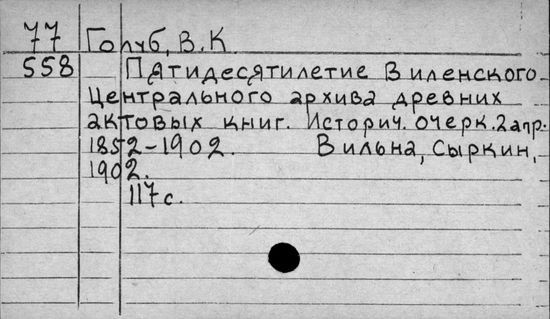 77 Голуб, В.К
558 Пятидесятилетие Виленского
Центрального архива древних
актовых книг. Историч. очерк. 2 апр.
1852-1902. Вильна, Сыркин,
1902.
117 с.